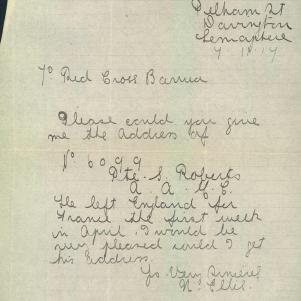 Pelham St
Davington
Semaphore
9 10 17
To Red Cross Barrua
Please could you give
me the address of
No 6099
Pte S. Roberts
A. A. G. C.
He left England for
France the first week
in April. I would be
very pleased could I get
his address.
Yo Very Sincerely
N. Ellis.